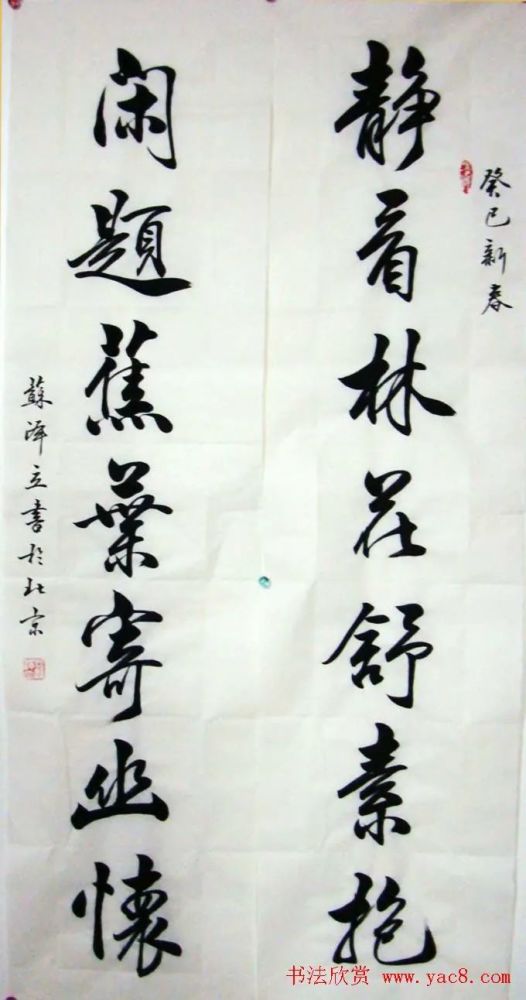 癸巳新春
静看林花舒素抱
闲題蕉葉寄幽懷
蘇澤立書於北京
书法欣赏 www.yac8.com